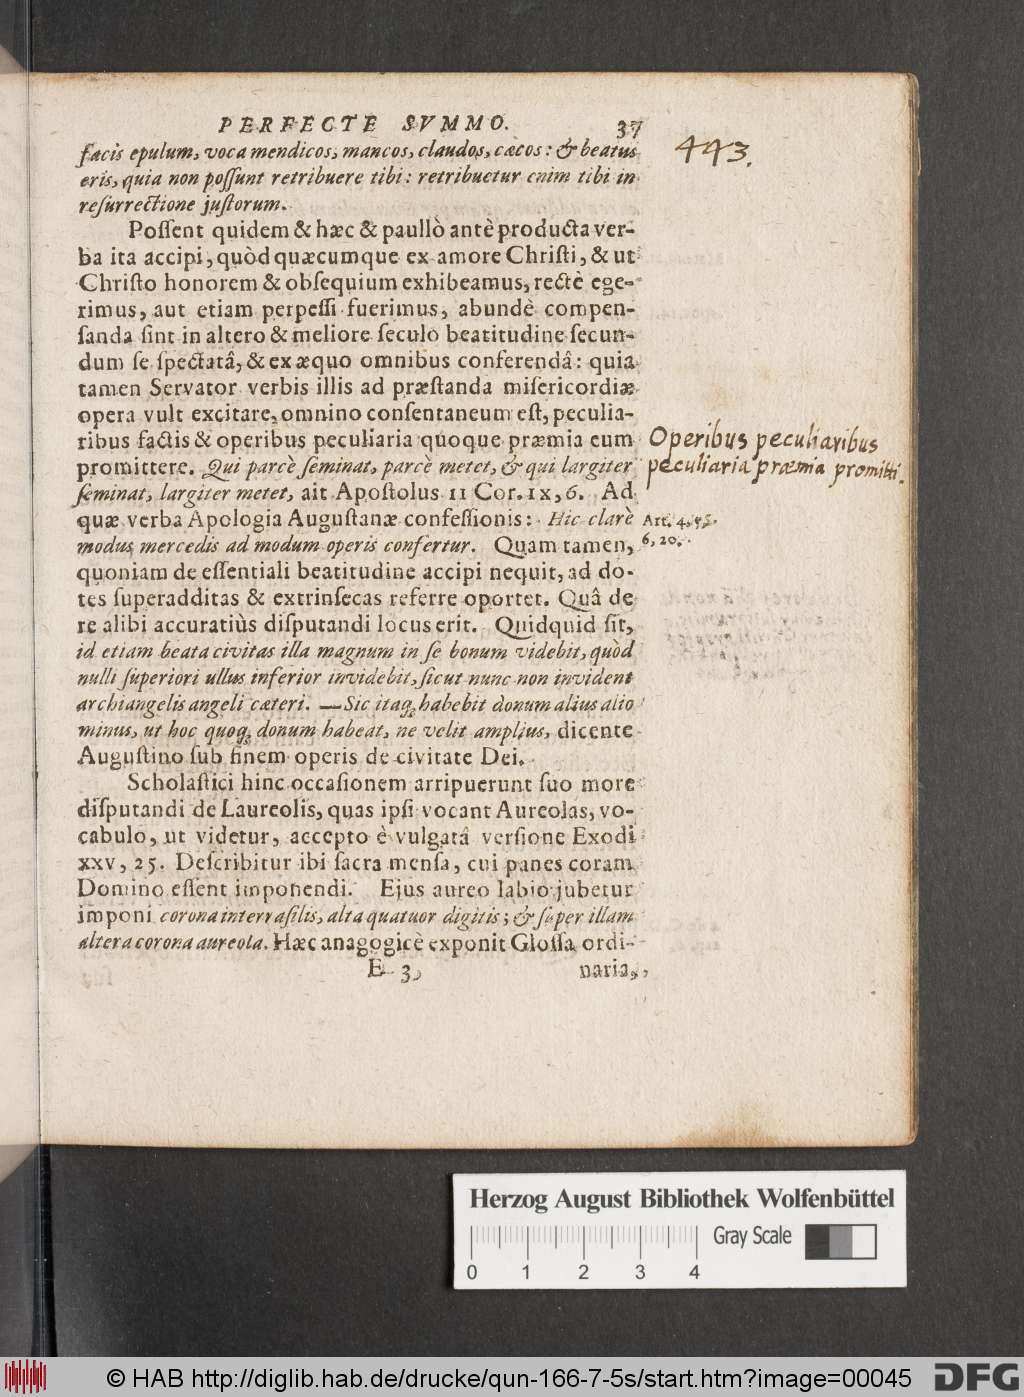 PERFECTE SVMMO. 37
443.
facis epulum, voca mendicos, mancos, claudos, cæcos: & beatus
eris, quia non poſſunt retribuere tibi: retribuetur enim tibi in
reſurrectione juſtorum.
Poſſent quidem & hæc & paullò antè producta ver-
ba ita accipi, quòd quæcumque ex amore Chriſti, & ut
Chriſto honorem & obſequium exhibeamus, rectè ege-
rimus, aut etiam perpeſſi fuerimus, abundè compen-
ſanda ſint in altero & meliore ſeculo beatitudine ſecun-
dum ſe ſpectatâ, & ex æquo omnibus conferendâ: quia
tamen Servator verbis illis ad præſtanda miſericordiæ
opera vult excitare, omnino conſentaneum eſt, peculia-
ribus factis & operibus peculiaria quoque præmia eum
promittere. Qui parcè ſeminat, parcè metet, & qui largiter
ſeminat, largiter metet, ait Apoſtolus II Cor. IX, 6. Ad
quæ verba Apologia Auguſtanæ confeſſionis: Hic clarè
modus mercedis ad modum operis confertur. Quam tamen,
quoniam de eſſentiali beatitudine accipi nequit, ad do-
tes ſuperadditas & extrinſecas referre oportet. Quâ de
re alibi accuratiùs diſputandi locus erit. Quidquid ſit,
id etiam beata civitas illa magnum in ſe bonum videbit, quòd
nulli ſuperiori ullus inferior invidebit, ſicut nunc non invident
archiangelis angeli cæteri. — Sic itaq; habebit donum alius alio
minus, ut hoc quoq; donum habeat, ne velit amplius, dicente
Auguſtino ſub finem operis de civitate Dei.
Scholaſtici hinc occaſionem arripuerunt ſuo more
diſputandi de Laureolis, quas ipſi vocant Aureolas, vo-
cabulo, ut videtur, accepto è vulgatâ verſione Exodi
XXV, 25. Deſcribitur ibi ſacra menſa, cui panes coram
Domino eſſent imponendi. Ejus aureo labio jubetur
imponi corona interraſilis, alta quatuor digitis; & ſuper illam
altera corona aureola. Hæc anagogicè exponit Gloſſa ordi-
E 3 naria,
Operibus peculiaribus
peculiaria præmia promitti.
Art. 4, 5,
6, 20.
Herzog August Bibliothek Wolfenbüttel
Gray Scale
0 1 2 3 4
© HAB http://diglib.hab.de/drucke/qun-166-7-5s/start.htm?image=00045
DFG